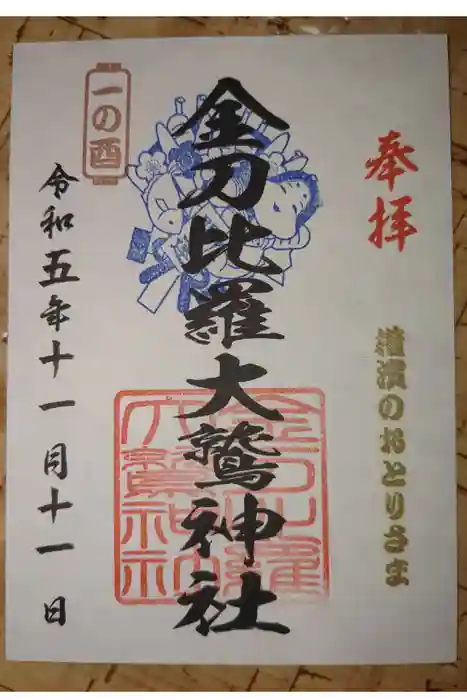 奉拝
横濱のおとりさま
金刀比羅大鷲神社
金刀比羅
大鷲神社
一の酉
令和五年十一月十一日